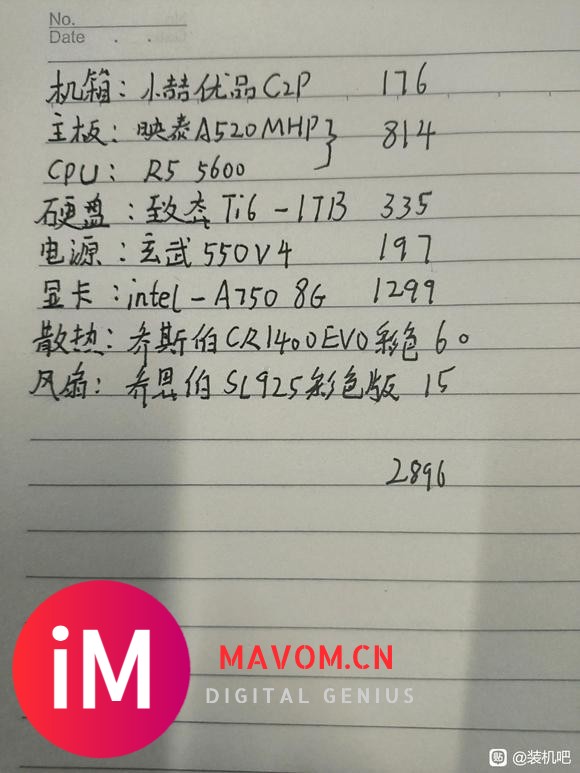 No.
Date . .
机箱：小喆优品C2P 176
主板：映泰A520MHP } 814
CPU：R5 5600
硬盘：致态Ti6-1TB 335
电源：玄武550V4 197
显卡：intel-A750 8G 1299
散热：乔斯伯CR1400EVO彩色 60
风扇：乔思伯SL925彩色版 15
2896
iM
MAVOM.CN
DIGITAL GENIUS
贴 @装机吧